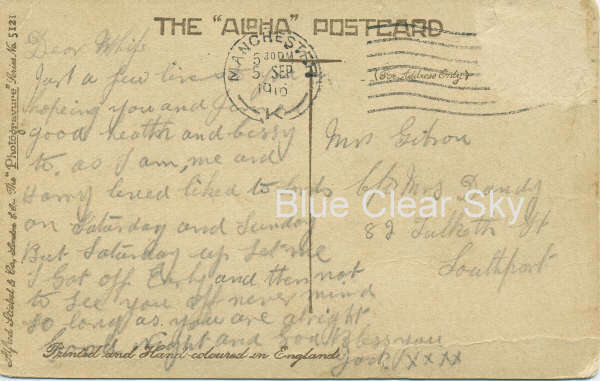 THE "ALPHA" POSTCARD
MANCHESTER
5 30 PM
5 SEP
1916
K
(For Address Only)
Dear Whife
Just a few lines
hoping you and
good health and
to. as I am, me and
Harry liked to
on Saturday and Sunday
But Saturday up set me
I Got off Early and then not
to see you But never mind
so long as you are alright
Good Night and God Bless you
Jack XXXX
Mrs Gibson
C/o Mrs Dandy
82 St
Southport
Blue Clear Sky
Printed and Hand-coloured in England
The "Photogravure" Series No. 5121